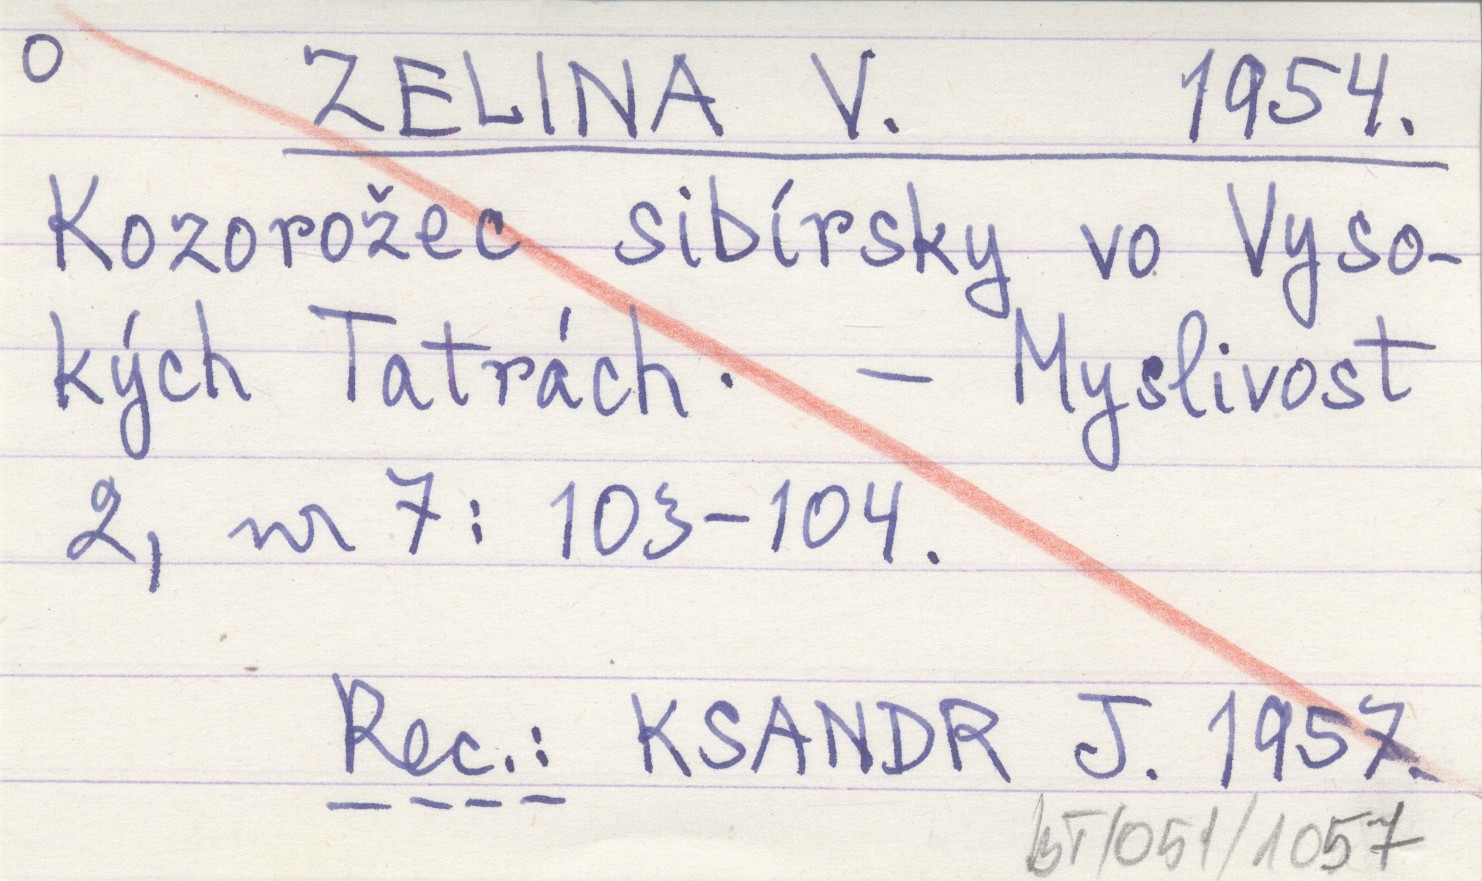 O ZELINA V. 1954.
Kozorožec sibírsky vo Vyso-
kých Tatrách. – Myslivost
2, nr 7: 103–104.
Rec.: KSANDR J. 1957.
BT/051/1057